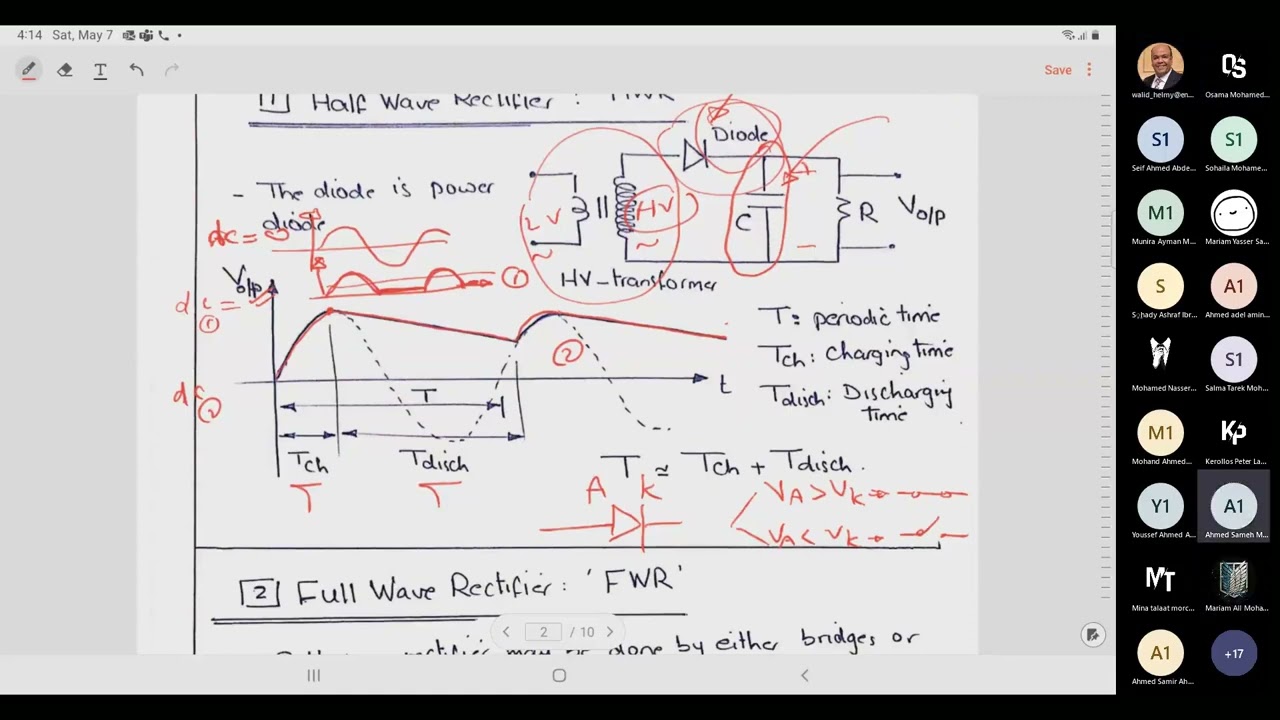 4:14 Sat, May 7
Save
1 Half Wave Rectifier : 'HWR'
Diode
- The diode is power
diode
LV
HV
C
R
Vo/p
+
-
~
~
dc = 0
HV-transformer
1
Vo/p
dc =
1
2
dc
2
t
T
Tch
Tdisch
T
T
T: periodic time
Tch: Charging time
Tdisch: Discharging
time
T ≈ Tch + Tdisch.
A K
VA > VK
VA < VK
2 Full Wave Rectifier : 'FWR'
2 / 10
done by either bridges or
walid_helmy@en...
OS
Osama Mohamed...
S1
Seif Ahmed Abde...
S1
Sohaila Mohame...
M1
Munira Ayman M...
Mariam Yasser Sa...
S
A1
Ahmed adel amin...
Mohamed Nasser...
S1
Salma Tarek Moh...
M1
Mohand Ahmed...
KP
Kerollos Peter La...
Y1
Youssef Ahmed A...
A1
Ahmed Sameh M...
MT
Mina talaat morc...
Mariam Ali Moha...
A1
Ahmed Samir Ah...
+17